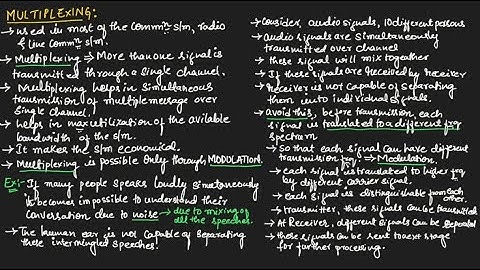 MULTIPLEXING:
→ used in most of the Commn s/m, radio
& line Commn s/m.
→ Multiplexing ⇒ More than one signal is
transmitted through a Single channel.
→ Multiplexing helps in Simultaneous
transmission of multiple message over
Single channel.
→ helps in max utilization of the avilable
bandwidth of the s/m.
→ It makes the s/m economical.
→ Multiplexing is possible Only through MODULATION.
Ex:- → If many people speaks loudly simultaneously
it becomes impossible to understand their
Conversation due to noise → due to mixing of
all the speeches.
→ The human ear is not Capable of separating
these intermingled speeches!
→ Consider, audio signals, 10 different persons
→ Audio signals are simultaneously
transmitted over channel
→ these signal will mix together
→ If these signals are received by receiver
→ Receiver is not capable of separating
them into individual signals.
→ avoid this, before transmission, each
signal is translated to a different frq
spectrum
→ So that each signal can have different
transmission frq. ⇒ Modulation.
→ each signal is translated to higher frq
by different carrier signal.
→ Each signal is distinguishable from each
other.
→ transmitter, these signals can be transmitted
→ At Receiver, different signals can be seperated
→ these signals can be sent to next stage
for further processing.